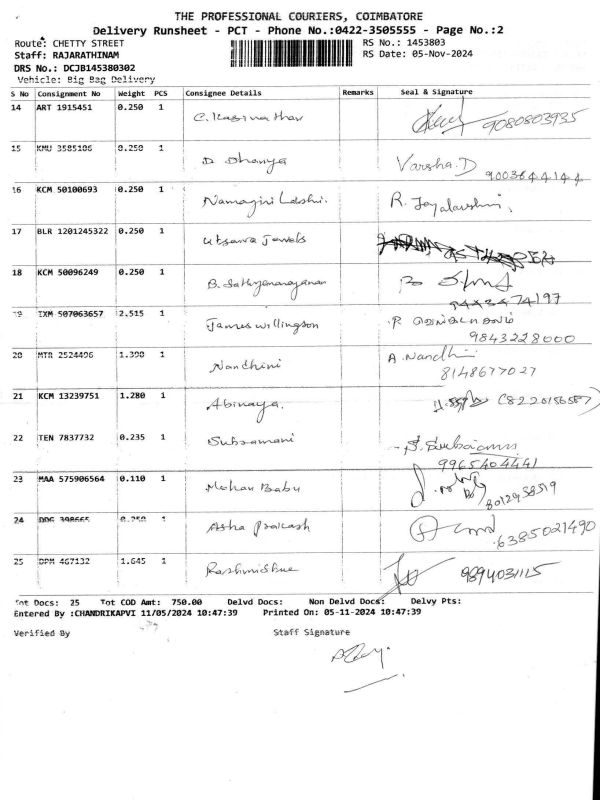 THE PROFESSIONAL COURIERS, COIMBATORE
Delivery Runsheet - PCT - Phone No.:0422-3505555 - Page No.:2
Route: CHETTY STREET RS No.: 1453803
Staff: RAJARATHINAM RS Date: 05-Nov-2024
DRS No.: DCJB145380302
Vehicle: Big Bag Delivery
S No Consignment No Weight PCS Consignee Details Remarks Seal & Signature
14 ART 1915451 0.250 1 C. Kasinathan 9080803935
15 KMU 3585186 0.250 1 D Dhanya Varsha.D
9003644144
16 KCM 50100693 0.250 1 R. Jayalakshmi.
17 BLR 1201245322 0.250 1 Utsava Jewels
18 KCM 50096249 0.250 1 B. Sathyanarayanan
74197
19 IXM 507063657 2.515 1 James Willingson
9843228000
20 MTR 2524496 1.390 1 Nandhini A. Nandhini
8148677027
21 KCM 13239751 1.280 1 Abinaya. (8220156587)
22 TEN 7837732 0.235 1 Subramani
9965404441
23 MAA 575906564 0.110 1 Mohan Babu
8012938519
24 DDG 398665 0.250 1 Asha Prakash
6385021490
25 DPM 467132 1.645 1 9894031115
Tot Docs: 25 Tot COD Amt: 750.00 Delvd Docs: Non Delvd Docs: Delvy Pts:
Entered By :CHANDRIKAPVI 11/05/2024 10:47:39 Printed On: 05-11-2024 10:47:39
Verified By Staff Signature